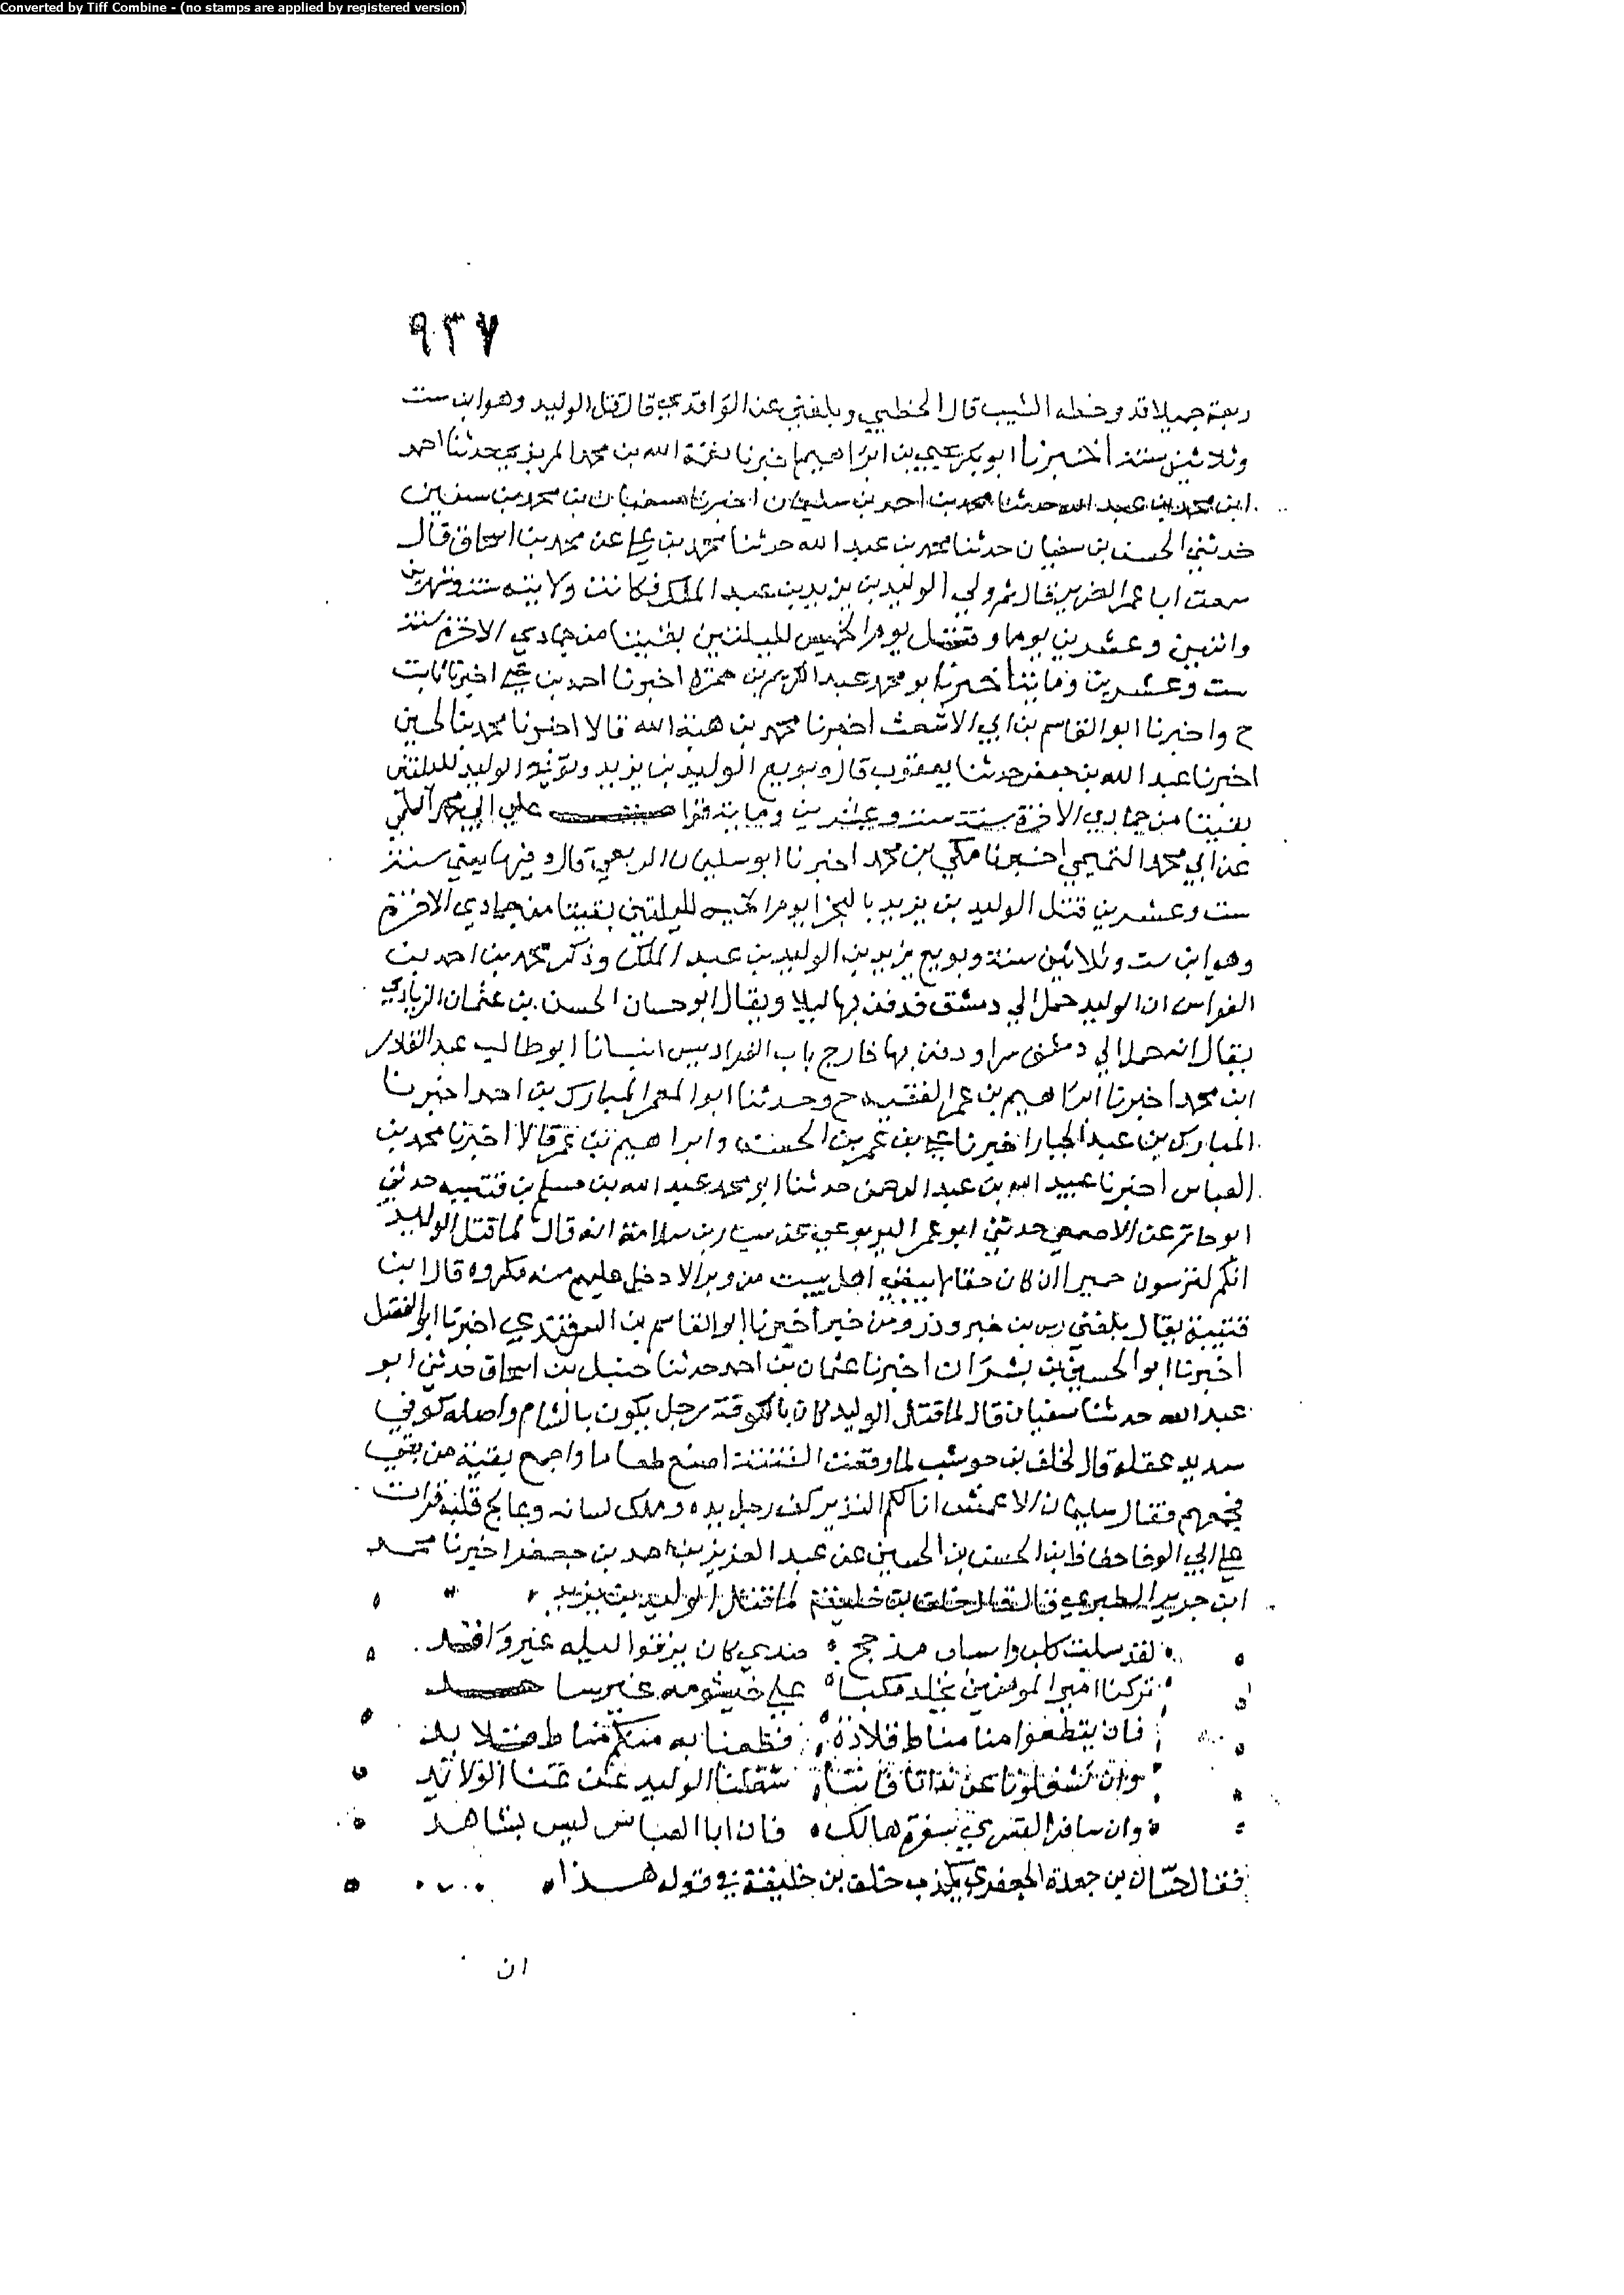 Converted by Tiff Combine - (no stamps are applied by registered version)
٩٣٧
ربعة جميلا قد وخطه الشيب قال الخطبي وبلغني عن الواقدي قال قتل الوليد وهو ابن ست
وثلاثين سنة اخبرنا ابو بكر يحيى بن ابراهيم اخبرنا نعمة الله بن محمد المرندي حدثنا احمد
ابن محمد بن عبد الله حدثنا محمد بن احمد بن سليمان اخبرنا سفيان بن محمد بن سفيان
حدثني الحسن بن سفيان حدثنا محمد بن عبد الله حدثنا محمد بن علي عن محمد بن اسحاق قال
سمعت ابا عمر الضرير قال ثم ولي الوليد بن يزيد بن عبد الملك فكانت ولايته سنة وشهرين
واثنين وعشرين يوما وقتل يوم الخميس لليلتين بقيتا من جمادي الاخرة سنة
ست وعشرين ومائة اخبرنا ابو محمد عبد الكريم بن حمزة اخبرنا احمد بن علي اخبرنا ثابت
ح واخبرنا ابو القاسم بن ابي الاشعث اخبرنا محمد بن هبة الله قالا اخبرنا محمد بن الحسين
اخبرنا عبد الله بن جعفر حدثنا يعقوب قال وبويع الوليد بن يزيد وتوفي الوليد لليلتين
بقيتا من جمادي الاخرة سنة ست وعشرين وماية قرا علي ابي محمد السلمي
عن ابي محمد التميمي اخبرنا مكي بن محمد اخبرنا ابو سليمان الربعي قال وفيها يعني سنة
ست وعشرين قتل الوليد بن يزيد بالبخرا يوم الخميس لليلتين بقيتا من جمادي الاخرة
وهو ابن ست وثلاثين سنة وبويع يزيد بن الوليد بن عبد الملك وذكر محمد بن احمد بن
القواس ان الوليد حمل الي دمشق فدفن بها ليلا ويقال ابو حسان الحسن بن عثمان الزيادي
يقال انه حمل الي دمشق سرا ودفن بها خارج باب الفراديس انبانا ابو طالب عبد القادر
ابن محمد اخبرنا ابراهيم بن عمر الفقيه ح وحدثنا ابو المعمر المبارك بن احمد اخبرنا
المبارك بن عبد الجبار اخبرنا علي بن عمر بن الحسن وابراهيم بن عمر قالا اخبرنا محمد بن
العباس اخبرنا عبيد الله بن عبد الرحمن حدثنا ابو محمد عبد الله بن مسلم بن قتيبه حدثني
ابو حاتم عن الاصمعي حدثني ابو عمر اليربوعي عن سيار بن سلامة انه قال لما قتل الوليد
انكم لترسون خبرا ان كان حقا لا يبقي اهل بيت من وبر الا دخل عليهم منه مكروه قال ابن
قتيبة يقال بلغني رس من خبر وذرو من خبر اخبرنا ابو القاسم بن السمرقندي اخبرنا ابو الفضل
اخبرنا ابو الحسين بن بشران اخبرنا عثمان بن احمد حدثنا حنبل بن اسحاق حدثني ابو
عبد الله حدثنا سفيان قال لما قتل الوليد كان بالكوفة رجل يكون بالشام واصله كوفي
سديد عقله قال لخلف بن حوشب لما وقعت الفتنة اصنع طعاما واجمع بقية من بقي
فجمعهم فقال سليمان الاعمش انا لكم النذير كف رجل يده وملك لسانه وعالج قلبه قرات
علي ابي الوفا حفاظ بن الحسن بن الحسين عن عبد العزيز بن احمد بن جعفر اخبرنا محمد
ابن جرير الطبري قال قال خلف بن خليفة لما قتل الوليد بن يزيد
لقد سكنت كلب واسياف مذحج صدي كان يزقوا ليله غير راقد
تركنا امير المومنين بخالد مكبا علي خيشومه غير ساجد
فان يقطعوا منا مناط قلادة قطعنا به منكم مناط قلايد
وان تشغلونا عن ندانا فاننا شغلنا الوليد عن غنا الولائد
وان سافر القسري سفرة هالك فان ابا العباس ليس بشاهد
فقال حسان بن جعدة الجعفري يكذب خلف بن خليفة في قوله هذا
ان